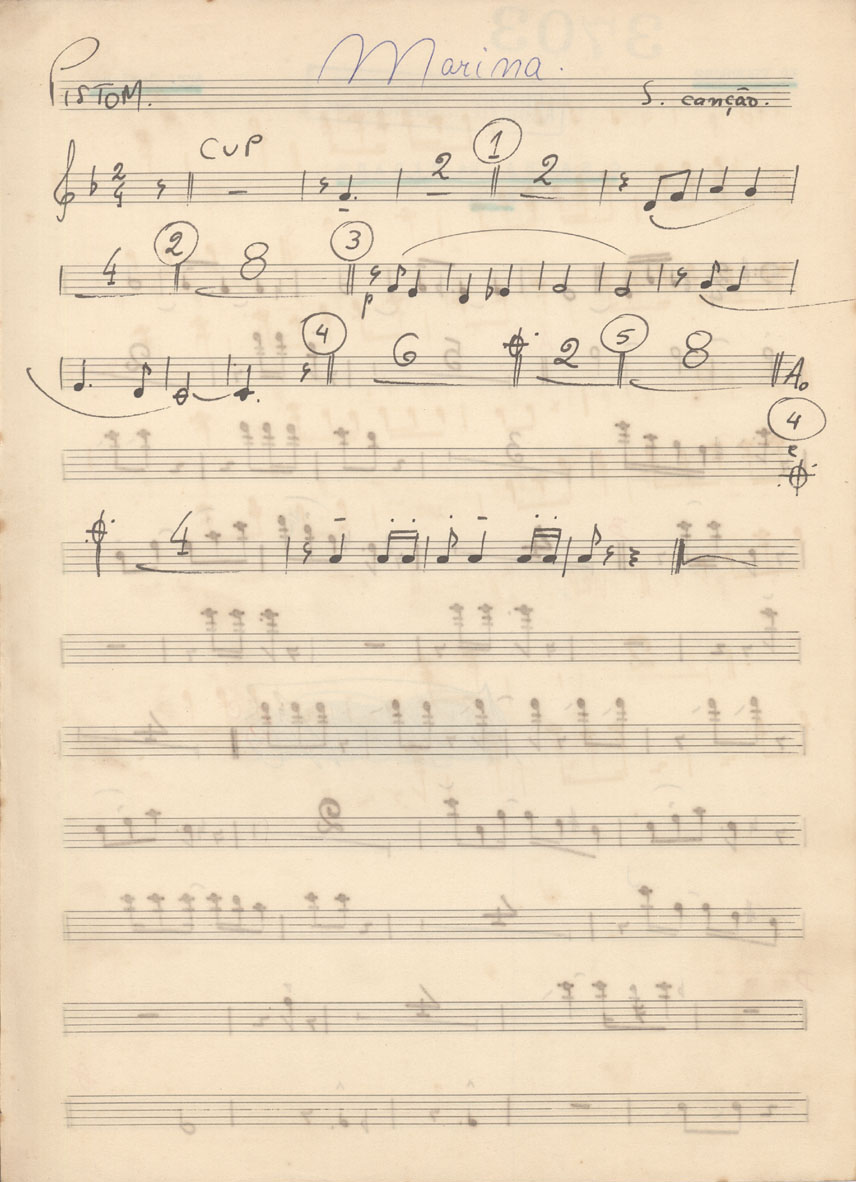 3703
Marina.
PISTOM.
S. canção.
CUP
1
2 4 2 2
2
3
4 8
p
4
5
6 2 8 A.
4
e
4